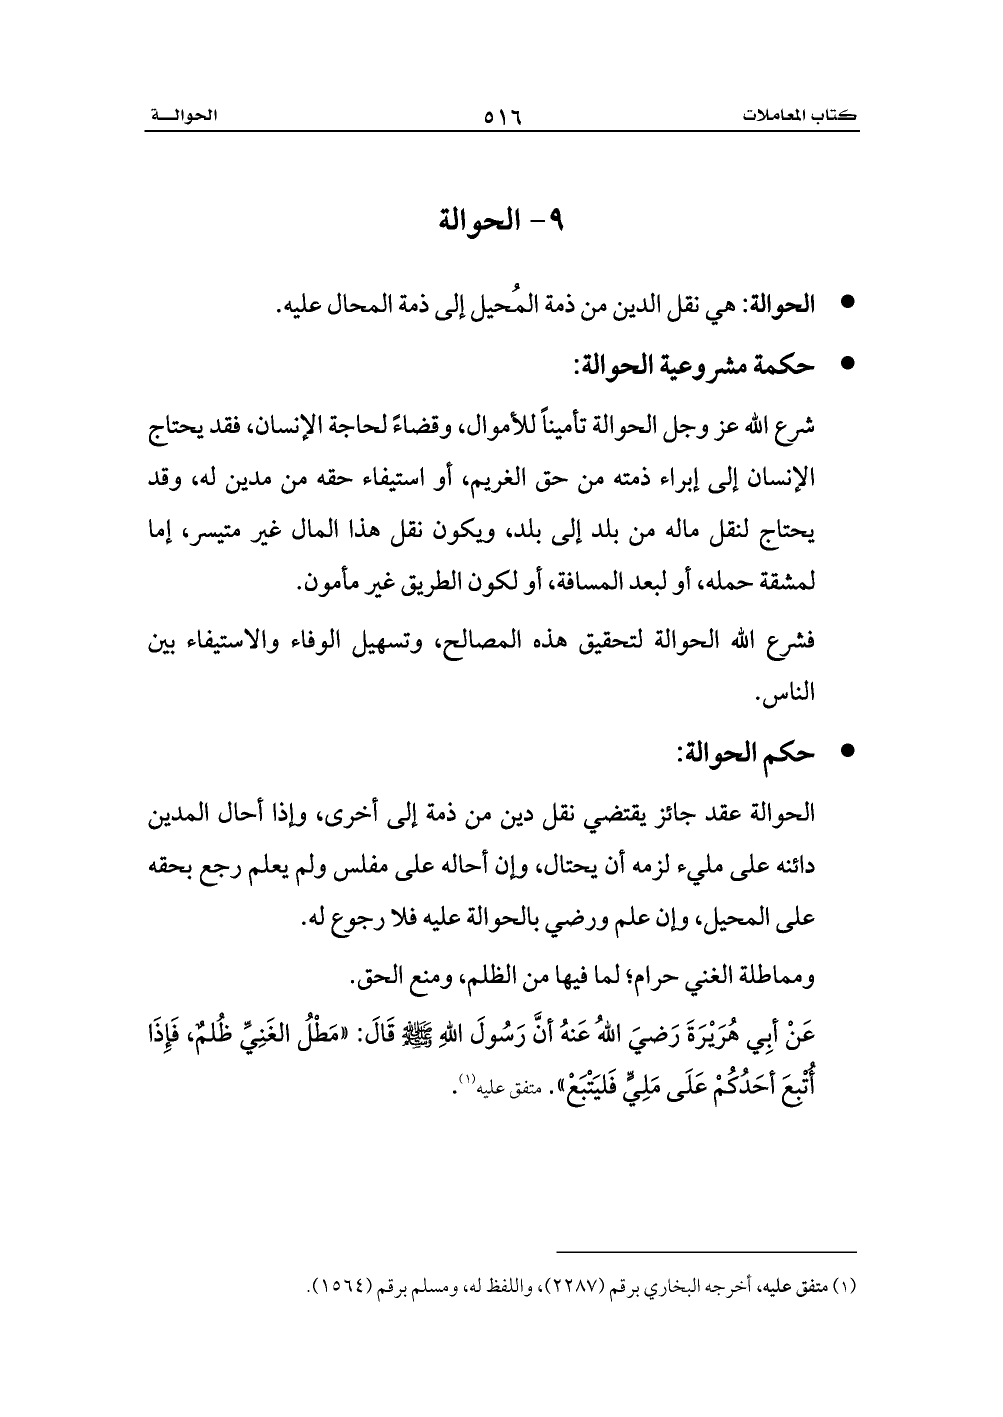 كتاب المعاملات ٥١٦ الحوالـــة
٩- الحوالة
• الحوالة: هي نقل الدين من ذمة المُحيل إلى ذمة المحال عليه.
• حكمة مشروعية الحوالة:
شرع الله عز وجل الحوالة تأميناً للأموال، وقضاءً لحاجة الإنسان، فقد يحتاج
الإنسان إلى إبراء ذمته من حق الغريم، أو استيفاء حقه من مدين له، وقد
يحتاج لنقل ماله من بلد إلى بلد، ويكون نقل هذا المال غير متيسر، إما
لمشقة حمله، أو لبعد المسافة، أو لكون الطريق غير مأمون.
فشرع الله الحوالة لتحقيق هذه المصالح، وتسهيل الوفاء والاستيفاء بين
الناس.
• حكم الحوالة:
الحوالة عقد جائز يقتضي نقل دين من ذمة إلى أخرى، وإذا أحال المدين
دائنه على مليء لزمه أن يحتال، وإن أحاله على مفلس ولم يعلم رجع بحقه
على المحيل، وإن علم ورضي بالحوالة عليه فلا رجوع له.
ومماطلة الغني حرام؛ لما فيها من الظلم، ومنع الحق.
عَنْ أبِي هُرَيْرَةَ رَضيَ اللهُ عَنهُ أنَّ رَسُولَ اللهِ ﷺ قَالَ: «مَطْلُ الغَنِيِّ ظُلمٌ، فَإِذَا
أُتْبِعَ أحَدُكُمْ عَلَى مَلِيٍّ فَليَتْبَعْ». متفق عليه(١).
(١) متفق عليه، أخرجه البخاري برقم (٢٢٨٧)، واللفظ له، ومسلم برقم (١٥٦٤).